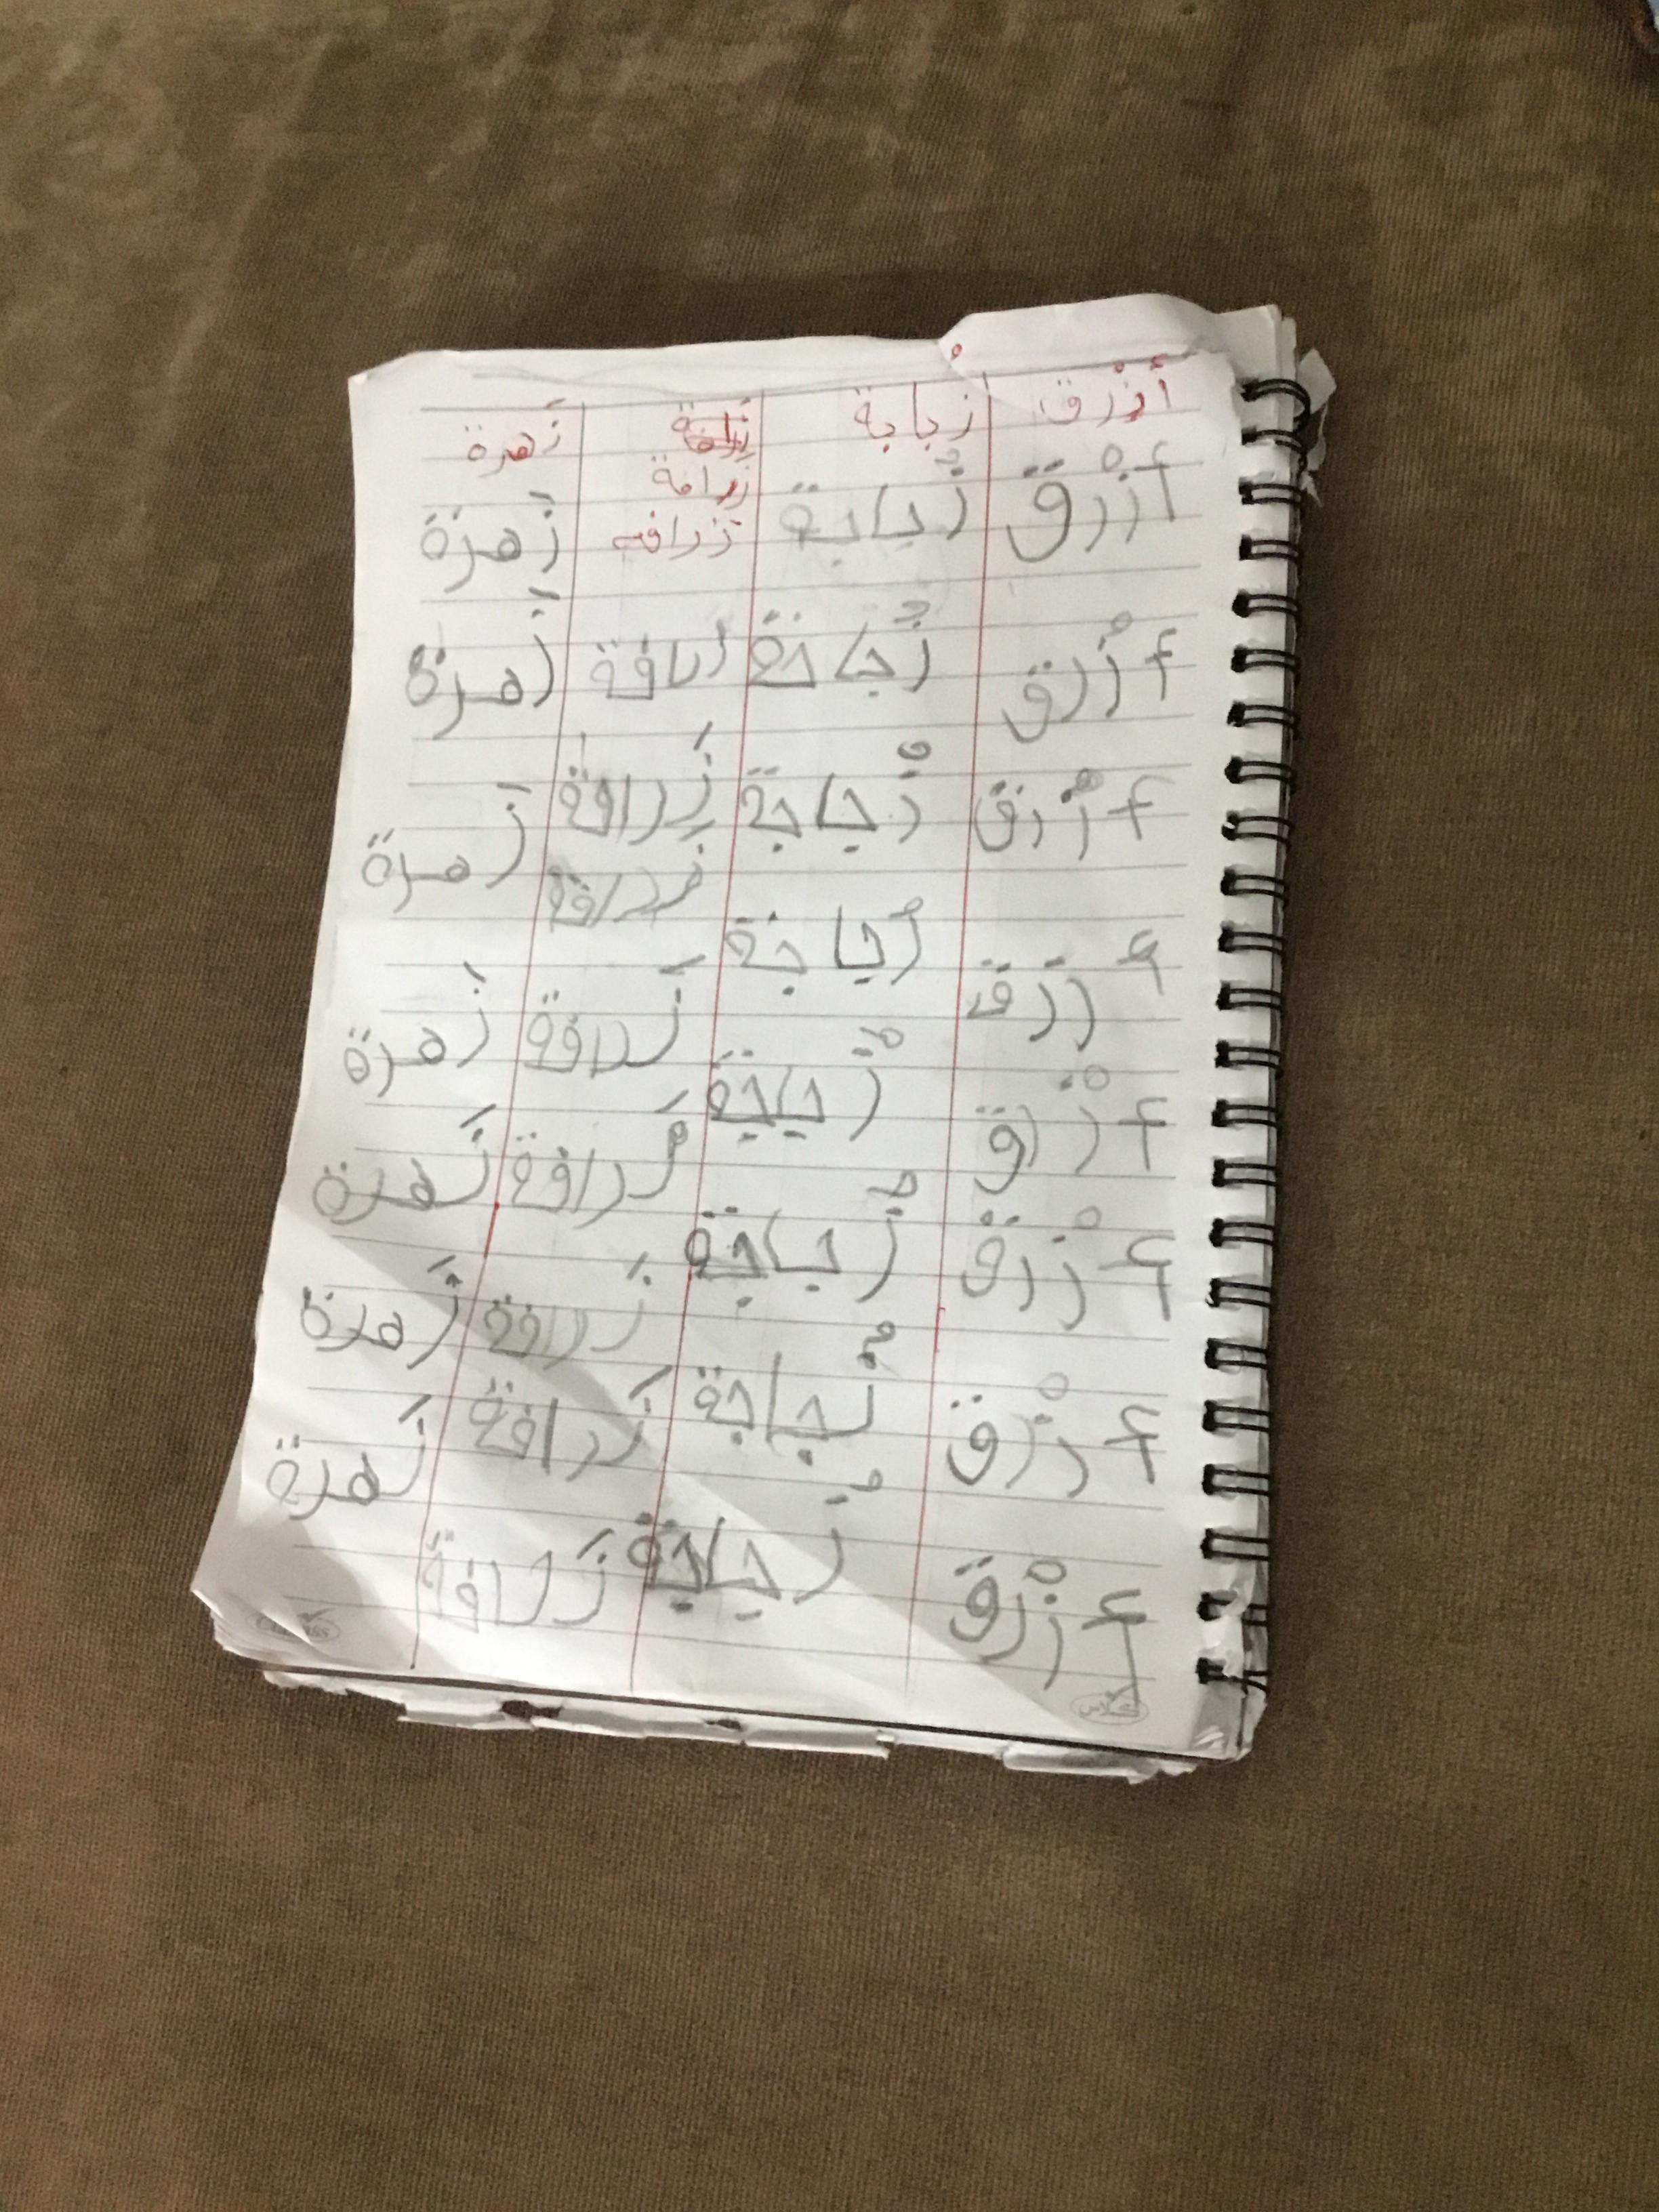 أزْرق زجاجة زرافة زَهرة
زرافة
زرافه
أزْرق زُجاجة زَهرة
أزْرق زُجاجة رافة زَهرة
أزْرق زُجاجة زَرافة زَهرة
زرافة
أزرق زُجاجة زَرافة زَهرة
أزْرق زُجاجة زَرافة زَهرة
أزْرق زُجاجة زَرافة زَهرة
أزْرق زُجاجة زَرافة زَهرة
أزْرق زُجاجة زَرافة
كلاس